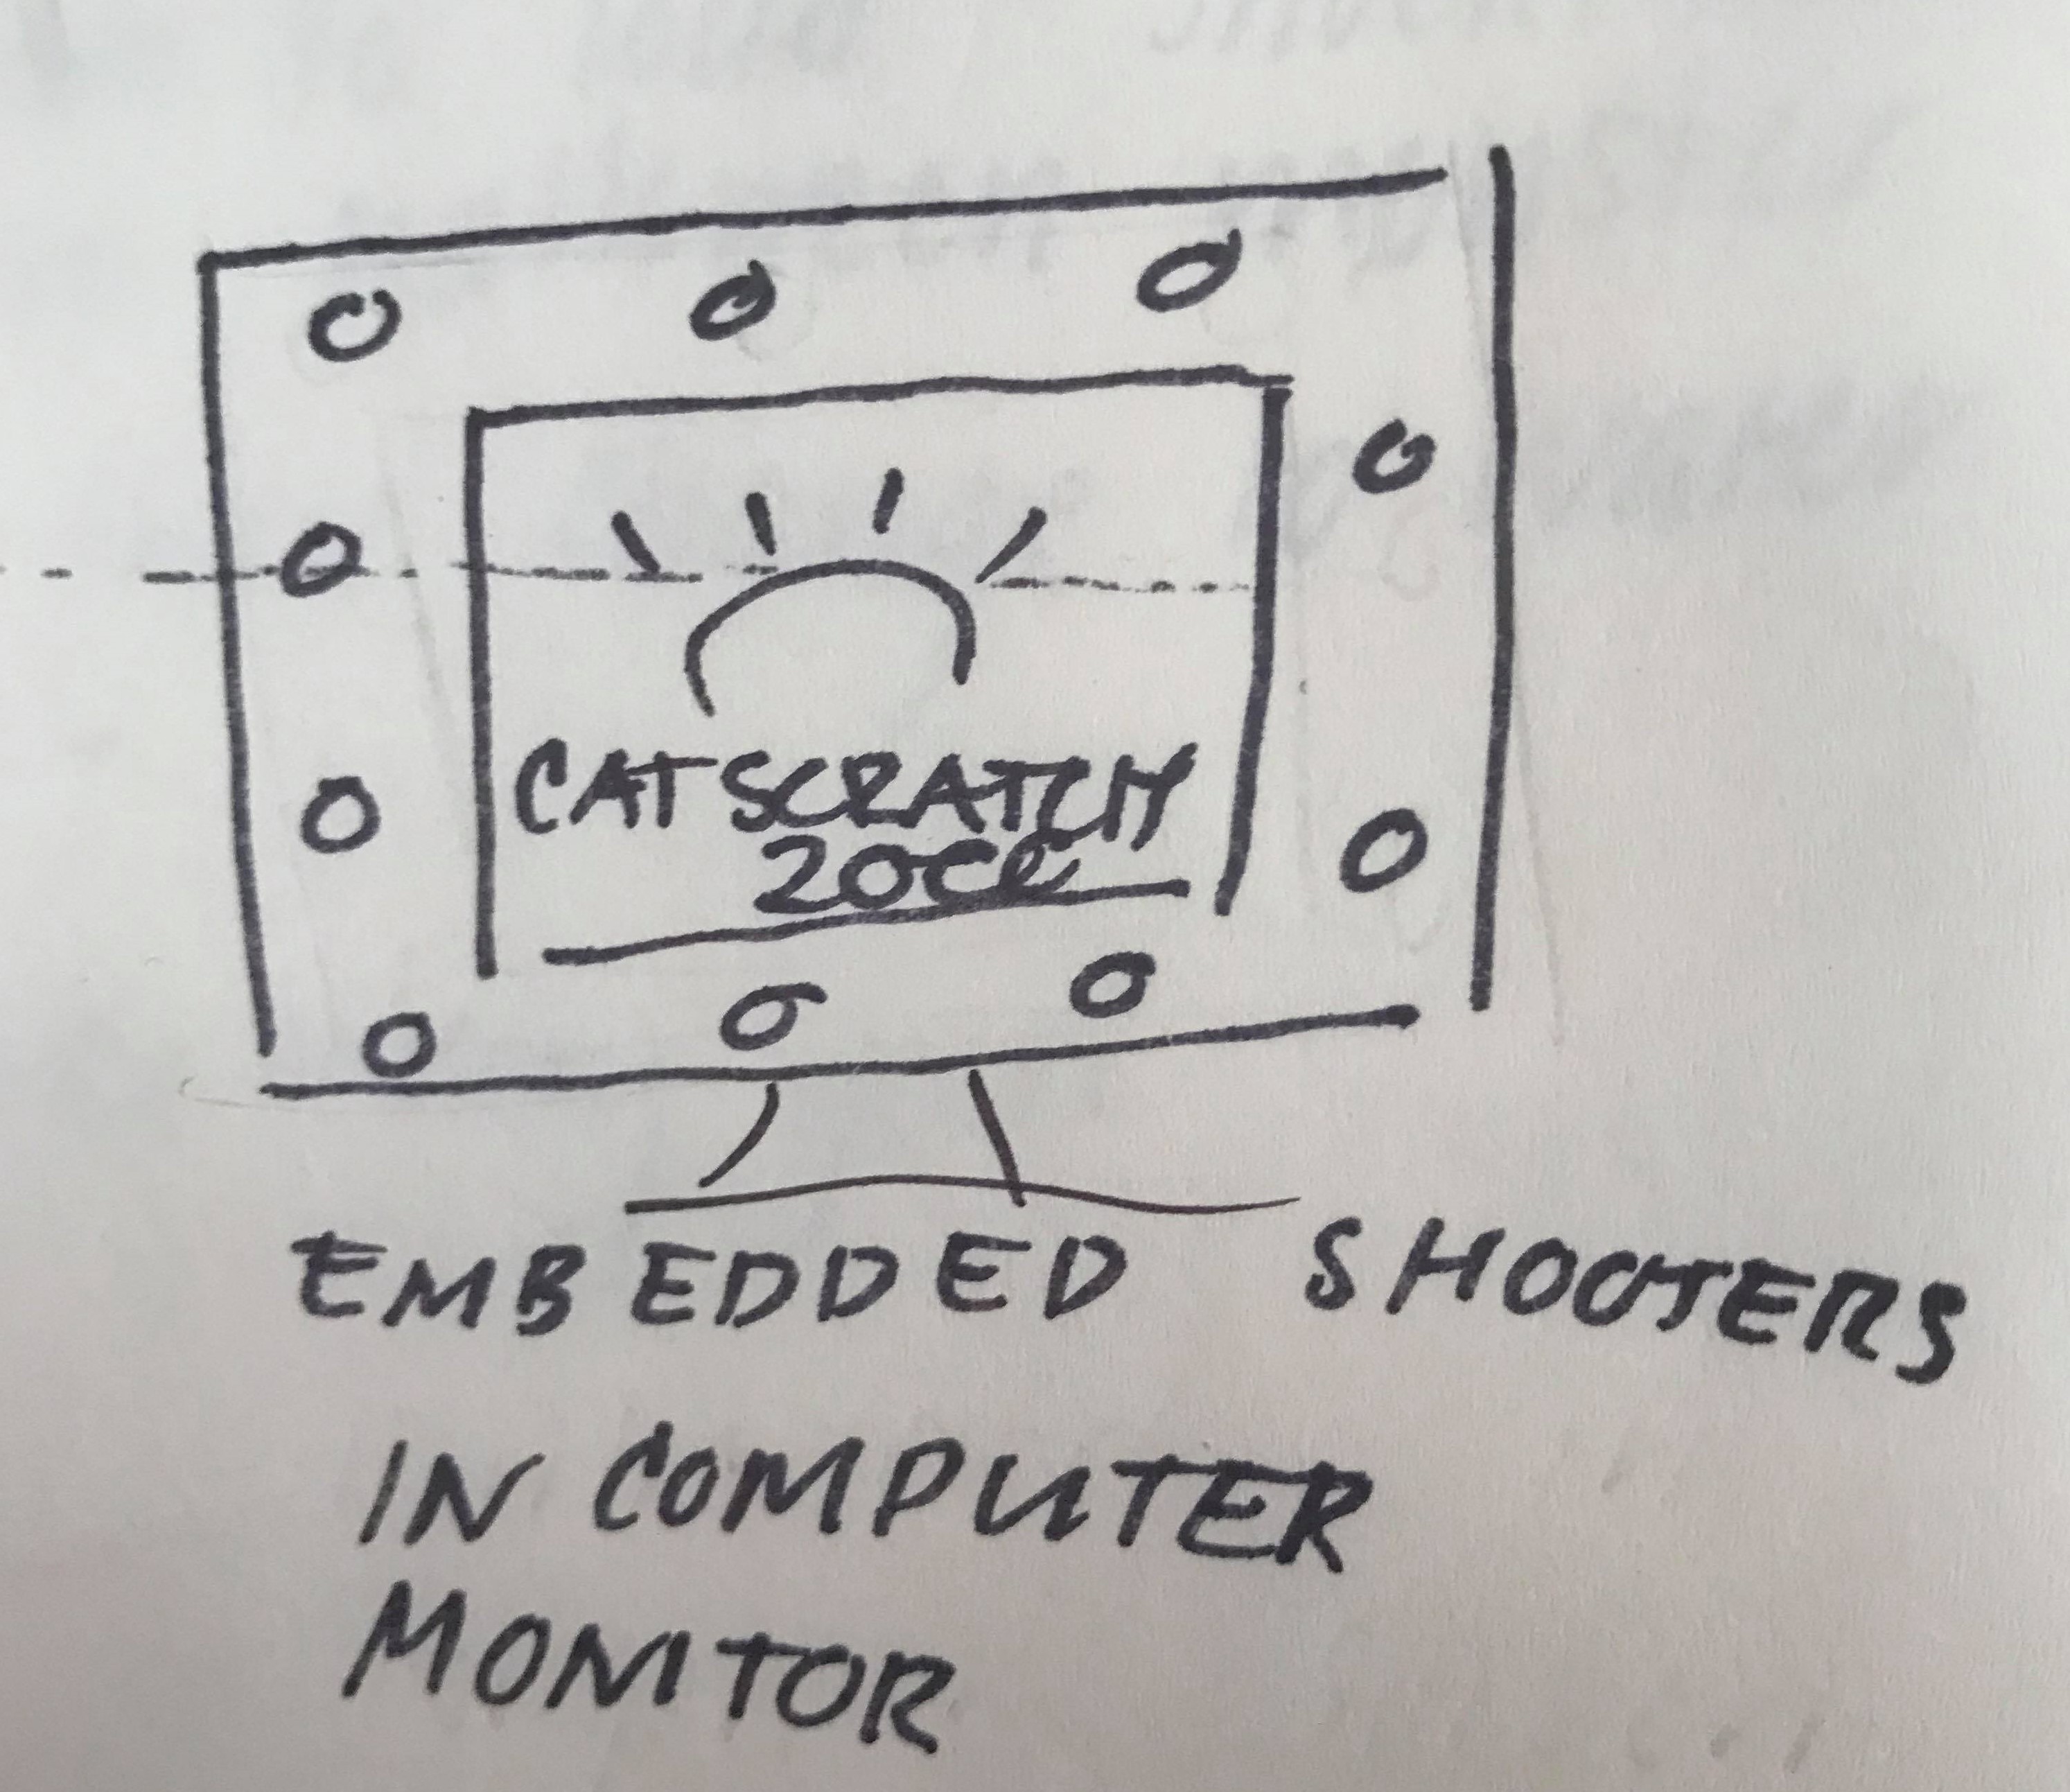 CATSCRATCH
20CC
EMBEDDED SHOOTERS
IN COMPUTER
MONITOR